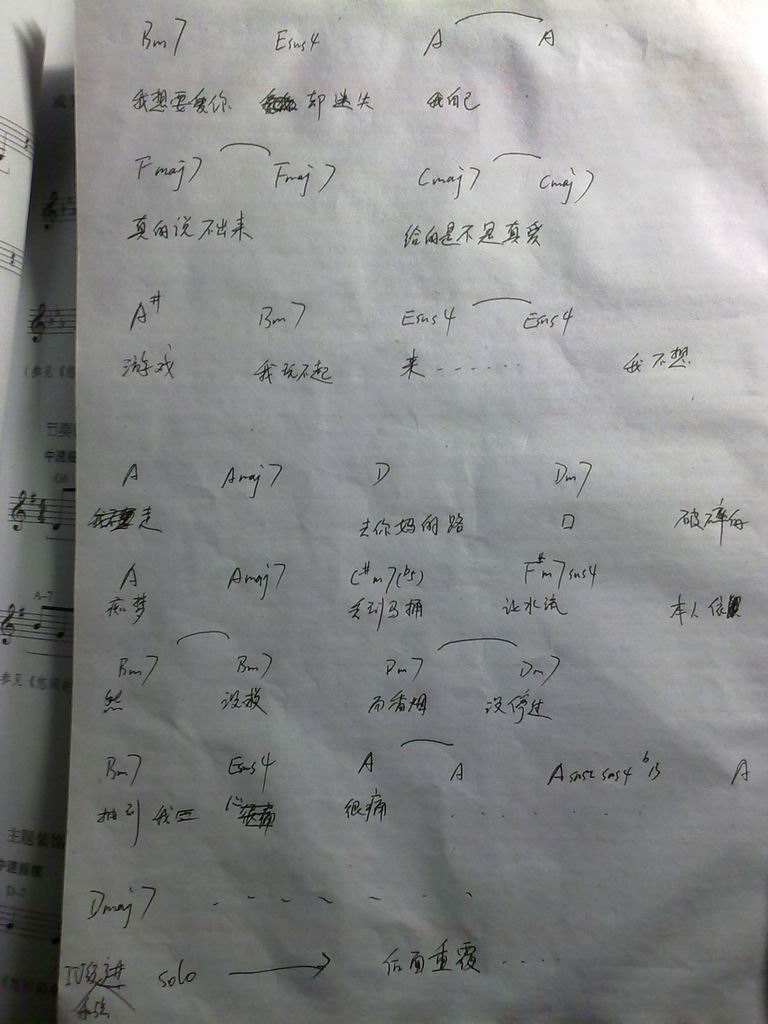 Bm7 Esus4 A A
我想要爱你 却迷失 我自己
Fmaj7 Fmaj7 Cmaj7 Cmaj7
真的说不出来 给的是不是真爱
A# Bm7 Esus4 Esus4
游戏 我玩不起 来...... 我不想
A Amaj7 D Dm7
走 去你妈的路 口 破碎的
A Amaj7 C#m7(b5) F#m7sus4
痴梦 丢到马桶 让水流 本人依
Bm7 Bm7 Dm7 Dm7
然 没救 而香烟 没停过
Bm7 Esus4 A A Asus2sus4 b13 A
抽到 我 心 很痛 ......
Dmaj7 ......
IV级进 solo → 后面重覆....
和弦
节奏
中速摇
G6
A-7
主题装饰
中速摇摆
D-7